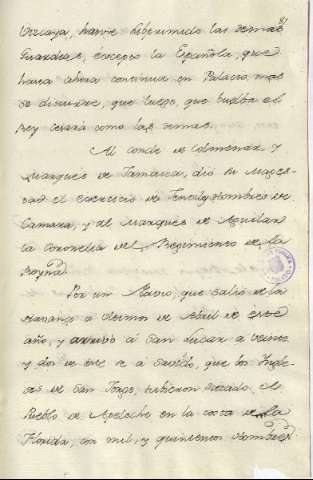 Vizcaya, haverse suprimido las demas
Guardias, excepto la Española, que
hasta ahora continua en Palacio, mas
se discurre, que luego, que buelba el
Rey cesará como las demas.
Al Conde de Colmenar, y
Marques de Jamaica, dió su Mages-
tad el exercicio de Gentiles hombres de
Camara, y al Marques de Aguilar
la Coronelia del Regimiento de la
Reyna.
Por un Navio, que salió de la
Havana a ultimos de Abril de este
año, y arrivó a San Lucar a veinte
y dos de este se a sabido, que los Ingle-
ses de San Jorge, hubieron sitiado el
Pueblo de Apalache en la costa de la
Florida, con mil, y quinientos hombres